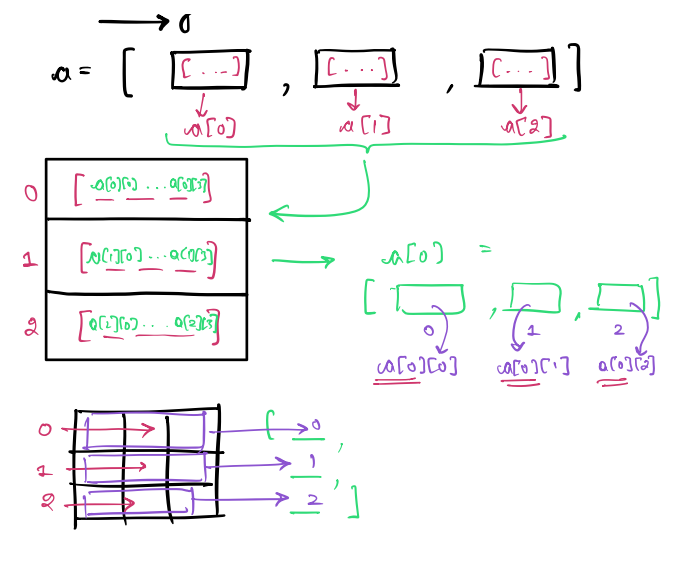 0
a = [ [...] , [...] , [...] ]
a[0] a[1] a[2]
0 [a[0][0] ... a[0][3]]
1 [a[1][0] ... a[1][3]]
2 [a[2][0] ... a[2][3]]
a[0] =
[ , , ]
0 1 2
a[0][0] a[0][1] a[0][2]
0 [ 0 ,
1 1 ,
2 2 ]